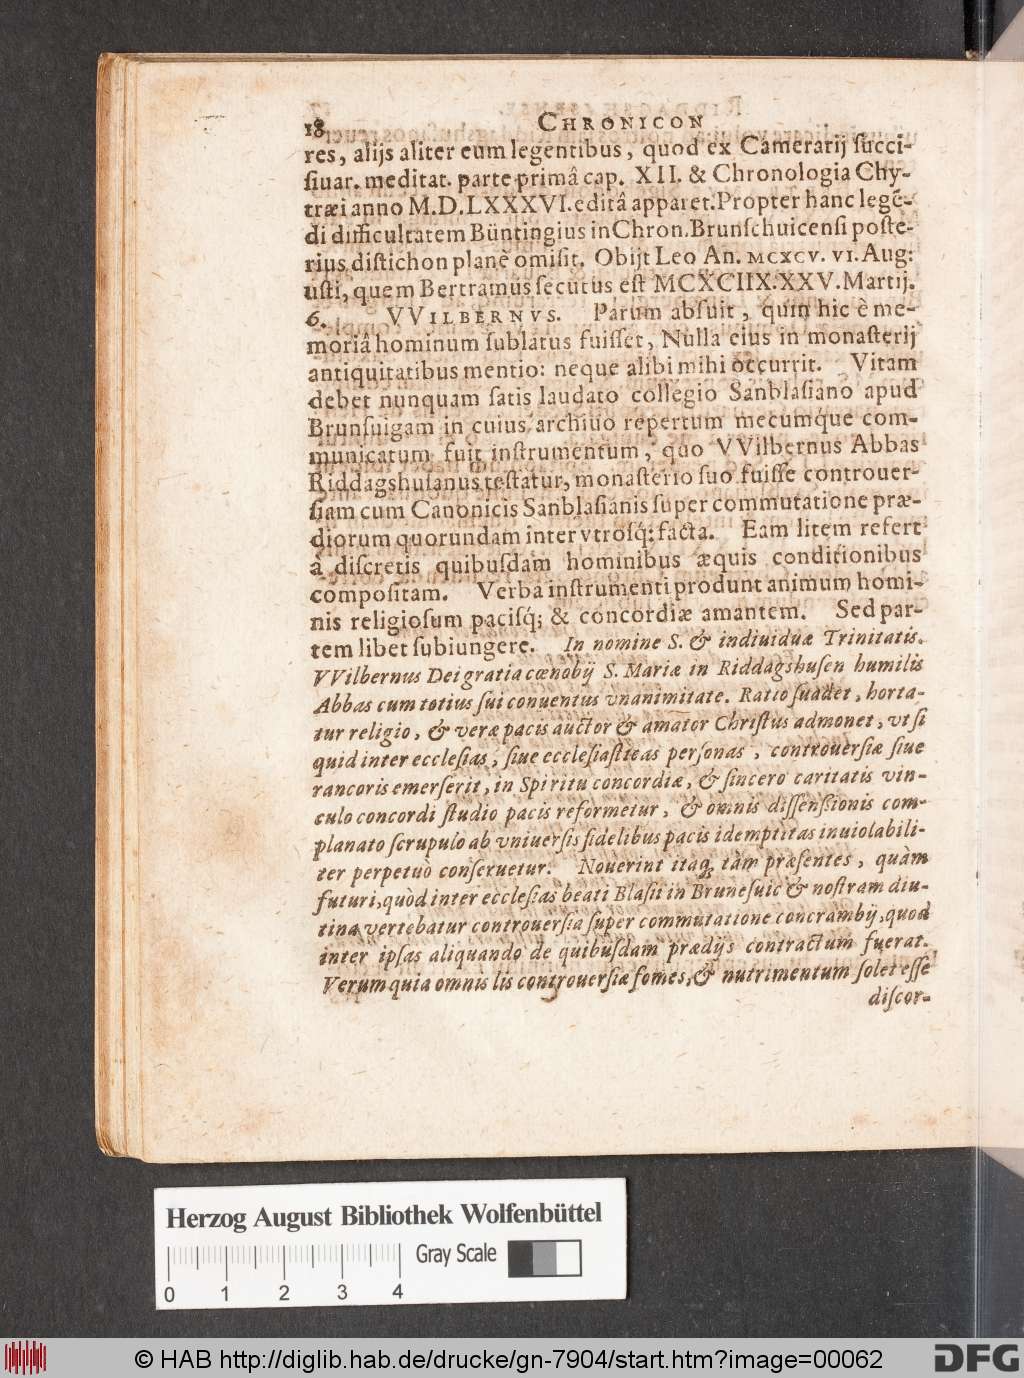 18 CHRONICON
res, alijs aliter eum legentibus, quod ex Camerarij ſucci-
ſiuar. meditat. parte primâ cap. XII. & Chronologia Chy-
træi anno M.D.LXXXVI. editâ apparet. Propter hanc legē-
di difficultatem Büntingius in Chron. Brunſchuicenſi poſte-
rius diſtichon planè omiſit. Obijt Leo An. MCXCV. VI. Aug:
uſti, quem Bertramus ſecutus eſt MCXCIIX. XXV. Martij.
6. VVILBERNVS. Parum abfuit, quin hic è me-
moriâ hominum ſublatus fuiſſet, Nulla eius in monaſterij
antiquitatibus mentio: neque alibi mihi occurrit. Vitam
debet nunquam ſatis laudato collegio Sanblaſiano apud
Brunſuigam in cuius archiuo repertum mecumq́ue com-
municatum fuit inſtrumentum, quo VVilbernus Abbas
Riddagshuſanus teſtatur, monaſterio ſuo fuiſſe controuer-
ſiam cum Canonicis Sanblaſianis ſuper commutatione præ-
diorum quorundam inter vtroſq́; facta. Eam litem refert
à diſcretis quibuſdam hominibus æquis conditionibus
compoſitam. Verba inſtrumenti produnt animum homi-
nis religioſum paciſq́; & concordiæ amantem. Sed par-
tem libet ſubiungere. In nomine S. & indiuiduæ Trinitatis.
VVilbernus Dei gratia cœnobij S. Mariæ in Riddagshuſen humilis
Abbas cum totius ſui conuentus vnanimitate. Ratio ſuadet, horta-
tur religio, & veræ pacis auctor & amator Chriſtus admonet, vt ſi
quid inter eccleſias, ſiue eccleſiaſticas perſonas, controuerſiæ ſiue
rancoris emerſerit, in Spiritu concordiæ, & ſincero caritatis vin-
culo concordi ſtudio pacis reformetur, & omnis diſſenſionis com-
planato ſcrupulo ab vniuerſis fidelibus pacis idemptitas inuiolabili-
ter perpetuò conſeruetur. Nouerint itaq; tàm præſentes, quàm
futuri, quòd inter eccleſias beati Blaſii in Bruneſuic & noſtram diu-
tina vertebatur controuerſia ſuper commutatione concrambij, quod
inter ipſas aliquando de quibuſdam prædijs contractum fuerat.
Verum quia omnis lis controuerſiæ fomes, & nutrimentum ſolet eſſe
diſcor-
Herzog August Bibliothek Wolfenbüttel
Gray Scale
0 1 2 3 4
© HAB http://diglib.hab.de/drucke/gn-7904/start.htm?image=00062
DFG